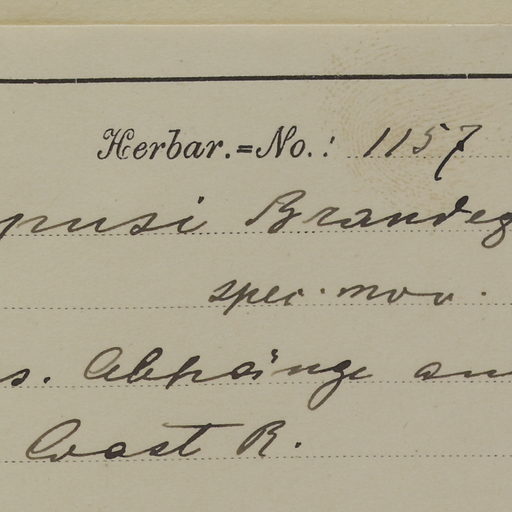 Herbar.=No.: 1157
pusi Brandeg
spec. nov.
s. Abhänge an
Coast R.